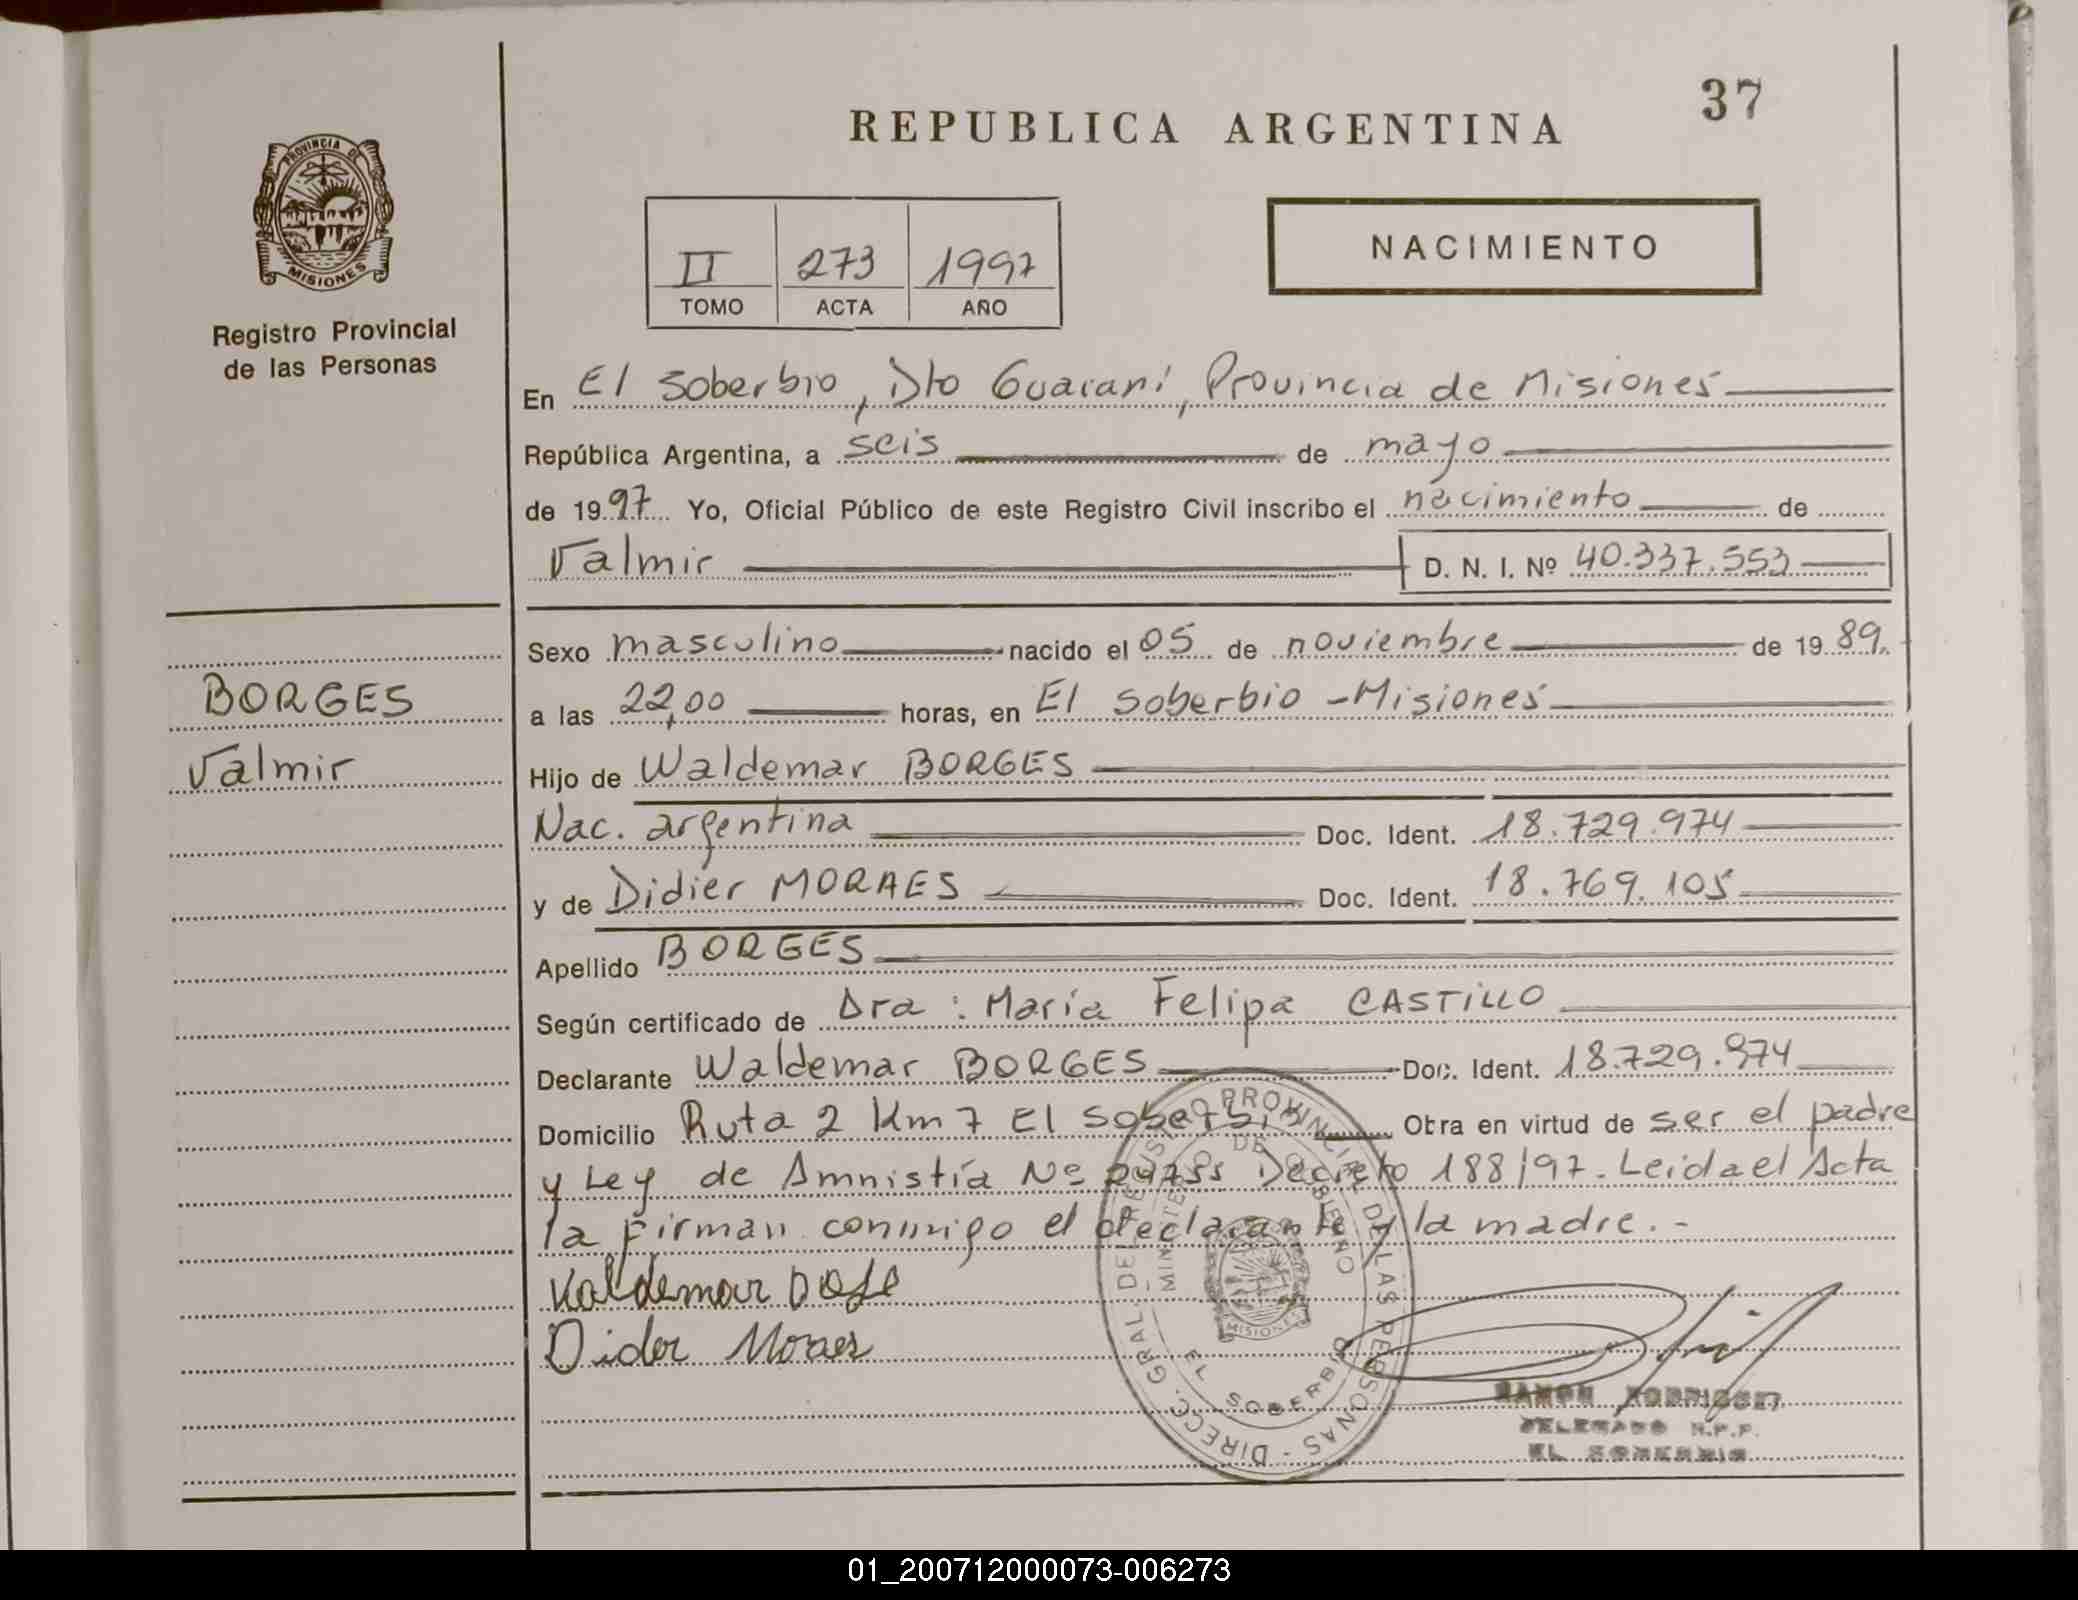 37
REPUBLICA ARGENTINA
PROVINCIA DE
MISIONES
Registro Provincial
de las Personas
II 273 1997
TOMO ACTA AÑO
NACIMIENTO
En El Soberbio, Dto Guaraní, Provincia de Misiones
República Argentina, a seis de mayo
de 1997 Yo, Oficial Público de este Registro Civil inscribo el nacimiento de
Valmir D. N. I. Nº 40.337.553
BORGES
Valmir
Sexo masculino nacido el 05 de noviembre de 1989.
a las 22,00 horas, en El Soberbio - Misiones
Hijo de Waldemar BORGES
Nac. argentina Doc. Ident. 18.729.974
y de Didier MORAES Doc. Ident. 18.769.105
Apellido BORGES
Según certificado de Dra : María Felipa CASTILLO
Declarante Waldemar BORGES Doc. Ident. 18.729.974
Domicilio Ruta 2 Km 7 El Soberbio Obra en virtud de ser el padre
y Ley de Amnistía Nº Decreto 188/97. Leida el Acta
la Firman conmigo el declarante y la madre.-
Valdemar
Didor Moraes
DIRECC. GRAL. DEL REGISTRO PROVINCIAL DE LAS PERSONAS
MINISTERIO DE GOBIERNO
MISIONES
EL SOBERBIO
RAMON RODRIGUEZ
DELEGADO R.P.P.
EL SOBERBIO
01_200712000073-006273